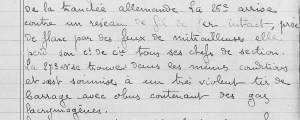 de la tranchée allemande. La 26e arrive
contre un réseau de fil de fer intact, prise
de flanc par des feux de mitrailleuses elle
perd son Ct de Cie tous ses chefs de section.
La 27e se trouve dans les mêmes conditions
et est soumise à un très violent tir de
barrage avec obus contenant des gaz
lacrymogènes.